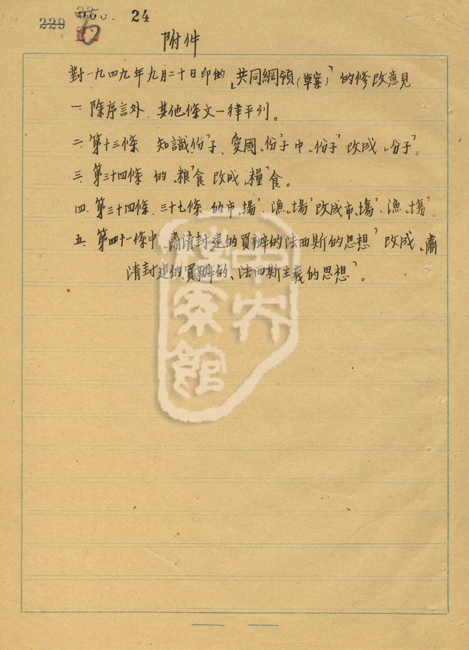 229 24
6
附件
對一九四九年九月二十日印的「共同綱領（草案）」的修改意見
一 除序言外，其他條文一律平列。
二 第十三條 知識「份」子、愛國「份」子中「份子」改成「分子」。
三 第三十四條 的「粮」食改成「糧」食。
四 第三十四條、三十七條 的市「場」、漁「場」改成市「塲」、漁「塲」
五 第四十一條中「肅清封建的買辦的法西斯的思想」改成「肅
清封建的買辦的、法西斯主義的思想」。
中央
檔案館